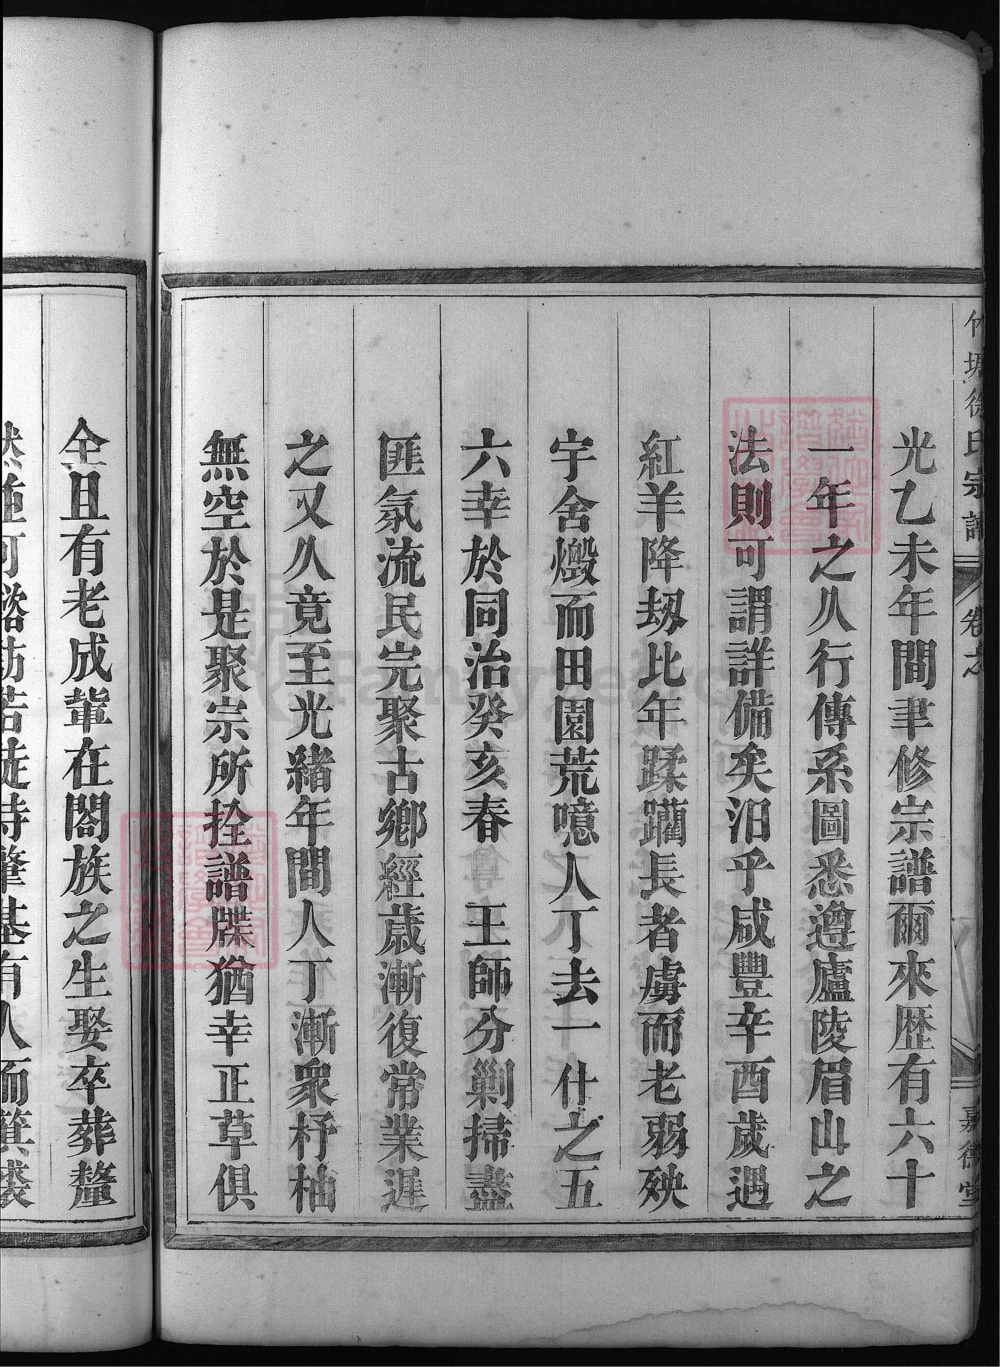 竹塘徐氏宗譜
卷之
嘉德堂
光乙未年間聿修宗譜爾來歷有六十
一年之久行傳系圖悉遵廬陵眉山之
法則可謂詳備矣汨乎咸豐辛酉歲遇
紅羊降刼比年蹂躪長者虜而老弱殃
宇舍燬而田園荒噫人丁去一什之五
六幸於同治癸亥春 王師分剿掃盡
匪氛流民完聚古鄉經歲漸復常業遲
之又久竟至光緒年間人丁漸衆杼柚
無空於是聚宗所拴譜牒猶幸正草俱
全且有老成輩在閤族之生娶卒葬釐